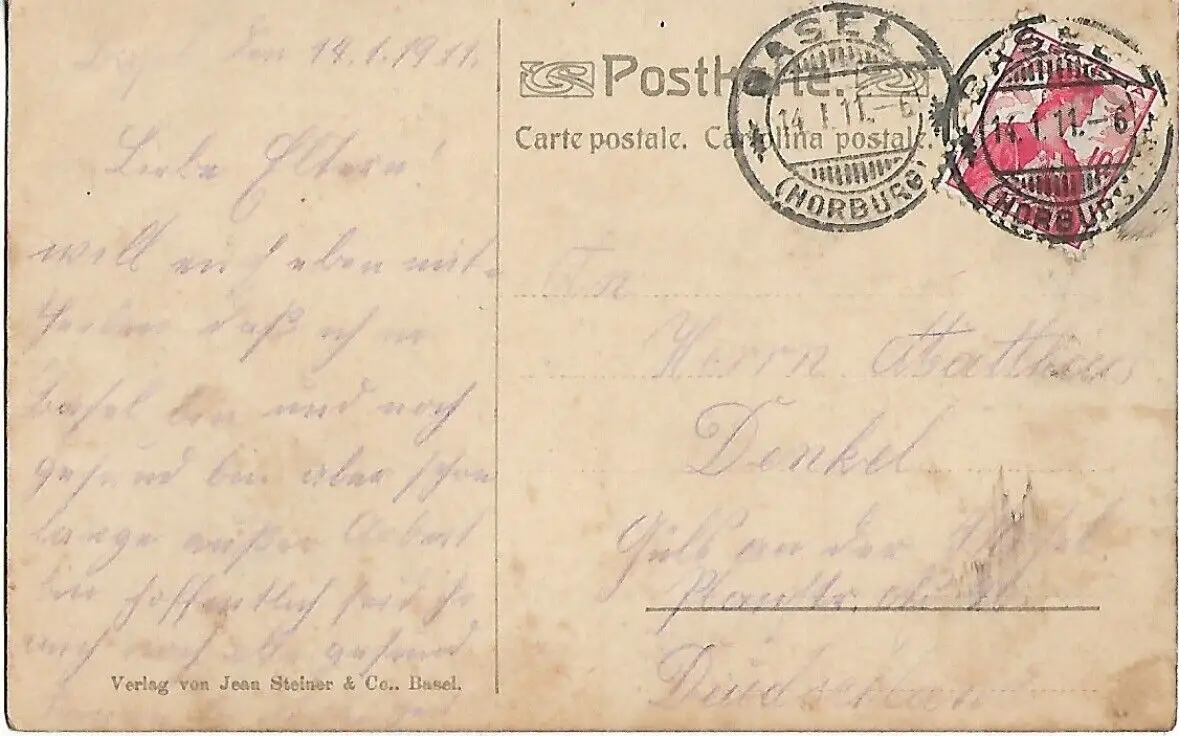 den 14.1.1911.
Liebe Eltern!
will euch eben mit-
teilen daß ich in
Basel bin und noch
gesund bin aber schon
lange außer Arbeit
bin hoffentlich seid ihr
auch noch alle gesund
Verlag von Jean Steiner & Co., Basel.
Postkarte.
Carte postale. Cartolina postale.
BASEL
14.I.11.–6
(HORBURG)
BASEL
14.I.11.–6
(HORBURG)
10
An
Herrn Matthias
Denkel
Güls an der Mosel